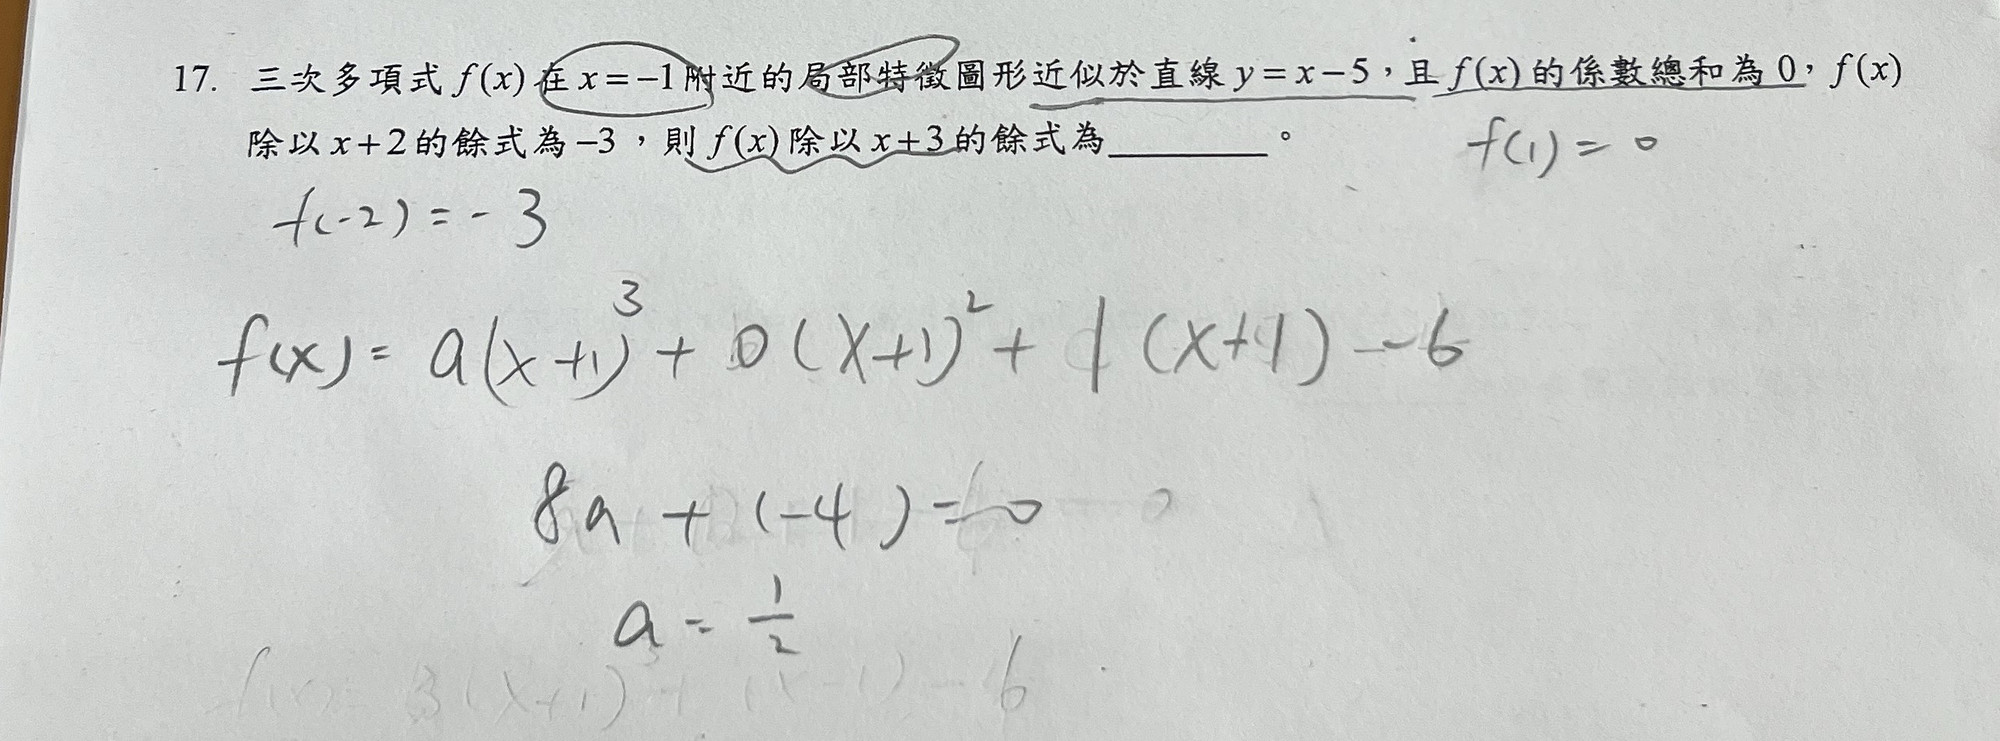 17. 三次多項式 f(x) 在 x=-1 附近的局部特徵圖形近似於直線 y=x-5，且 f(x) 的係數總和為 0，f(x)
除以 x+2 的餘式為 -3，則 f(x) 除以 x+3 的餘式為________。
f(1)=0
f(-2)=-3
f(x)=a(x+1)³+0(x+1)²+1(x+1)-6
8a+(-4)=0
a=1/2